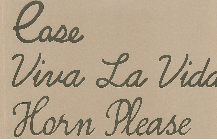 Ease
Viva La Vida
Horn Please